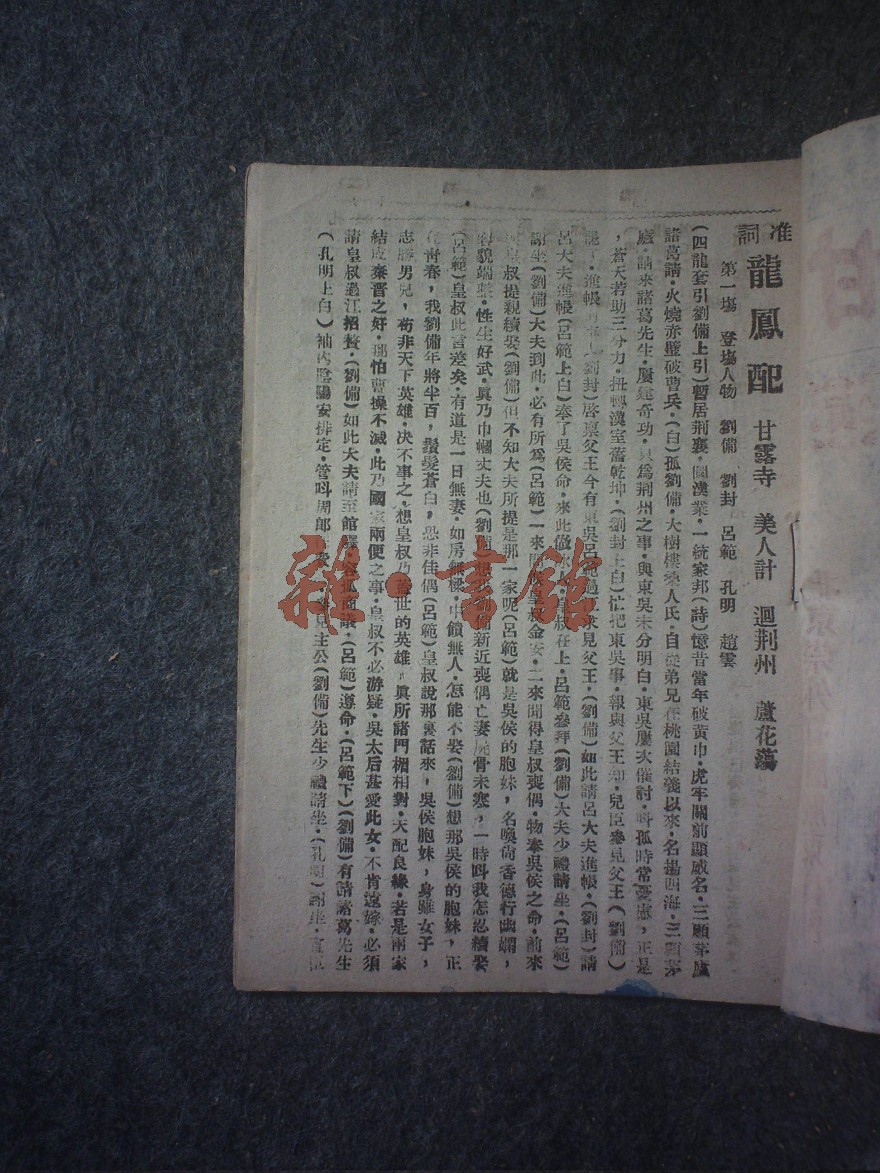 准詞 龍鳳配 甘露寺 美人計 迴荊州 蘆花蕩
第一塲 登塲人物 劉備 劉封 呂範 孔明 趙雲
(四龍套引劉備上引)暫居荊襄・圖漢業・一統家邦(詩)憶昔當年破黃巾・虎牢關前顯威名・三顧茅廬
諸葛請・火燒赤壁破曹兵・(白)孤劉備・大樹樓桑人氏・自從弟兄在桃園結義以來・名揚四海・三顧茅
廬・請來諸葛先生・屢建奇功・只為荊州之事・與東吳未分明白・東吳屢次催討・呌孤時常憂慮，正是
，蒼天若助三分力・扭轉漢室舊乾坤・(劉封上白)忙把東吳事・報與父王知・兒臣參見父王(劉備)
進帳 劉封)啓禀父王今有東吳呂範過江求見父王・(劉備)如此請呂大夫進帳・(劉封)請
呂大夫進帳(呂範上白)奉了吳侯命・來此做冰 皇叔在上・呂範參拜(劉備)大夫少禮請坐・(呂範)
謝坐(劉備)大夫到此・必有所為(呂範)一來問候皇叔金安・二來聞得皇叔喪偶・物奉吳侯之命・前來
皇叔提親續娶(劉備)但不知大夫所提是那一家呢(呂範)就是吳侯的胞妹，名喚尚香德行幽嫻，
容貌端莊・性生好武・眞乃巾幗丈夫也(劉備)想我劉備新近喪偶亡妻屍骨未寒，一時呌我怎忍續娶
(呂範)皇叔此言差矣・有道是一日無妻・如房無樑・中饋無人・怎能不娶(劉備)想那吳侯的胞妹，正
在靑春，我劉備年將半百，鬚髮蒼白，恐非佳偶(呂範)皇叔說那裏話來，吳侯胞妹，身雖女子，
志勝男兒，茍非天下英雄・决不事之・想皇叔乃蓋世的英雄・眞所諸門楣相對・天配良緣・若是兩家
結成秦晋之好・那怕曹操不滅・此乃國家兩便之事・皇叔不必游疑・吳太后甚愛此女・不肯遠嫁・必須
請皇叔過江招贅・(劉備)如此大夫請至館驛・容孤商議・(呂範)遵命・(呂範下)(劉備)有請諸葛先生
(孔明上白)袖內陰陽安排定・管呌周郎 主公(劉備)先生少禮請坐・(孔明)謝坐・
雜・書館